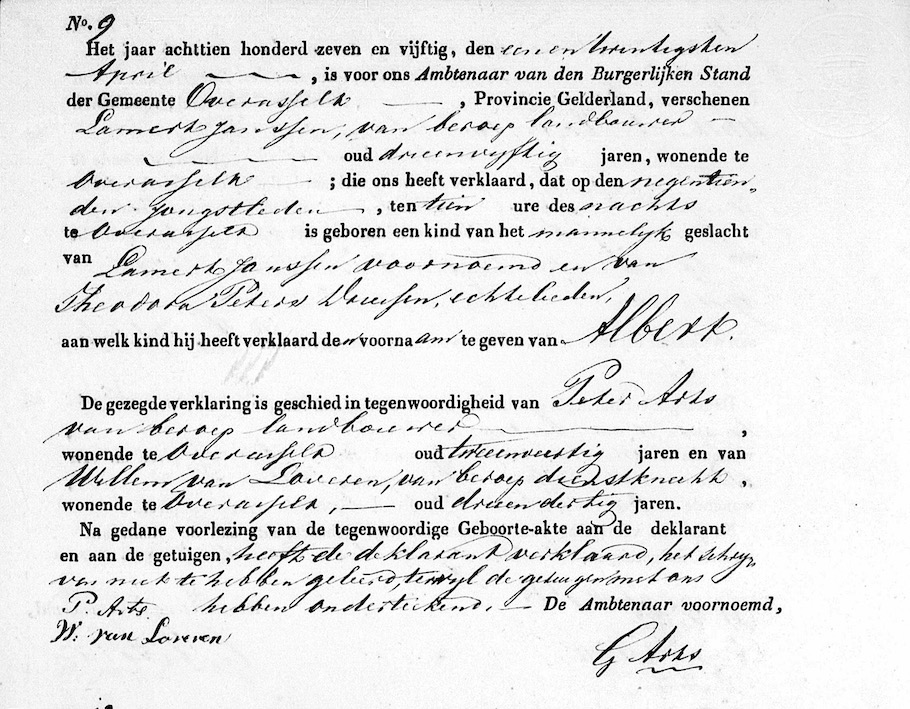 No. 9
Het jaar achttien honderd zeven en vijftig, den eenentwintigsten
April , is voor ons Ambtenaar van den Burgerlijken Stand
der Gemeente Overasselt , Provincie Gelderland, verschenen
Lamert Janssen, van beroep landbouwer
oud drieenvyftig jaren, wonende te
Overasselt ; die ons heeft verklaard, dat op den negentien
den jongstleden , ten tien ure des nachts
te Overasselt is geboren een kind van het mannelyk geslacht
van Lamert Janssen voornoemd en van
Theodora Peters Driessen, echtelieden,
aan welk kind hij heeft verklaard den voornaam te geven van Albert.
De gezegde verklaring is geschied in tegenwoordigheid van Peter Arts
van beroep landbouwer ,
wonende te Overasselt oud tweeenveertig jaren en van
Willem van Loveren, van beroep dienstknecht,
wonende te Overasselt, oud drieendertig jaren.
Na gedane voorlezing van de tegenwoordige Geboorte-akte aan de deklarant
en aan de getuigen, heeft de deklarant verklaard, het schry-
ven niet te hebben geleerd, terwyl de getuigen met ons
P. Arts hebben onderteekend. De Ambtenaar voornoemd,
W. van Loveren
G Arts